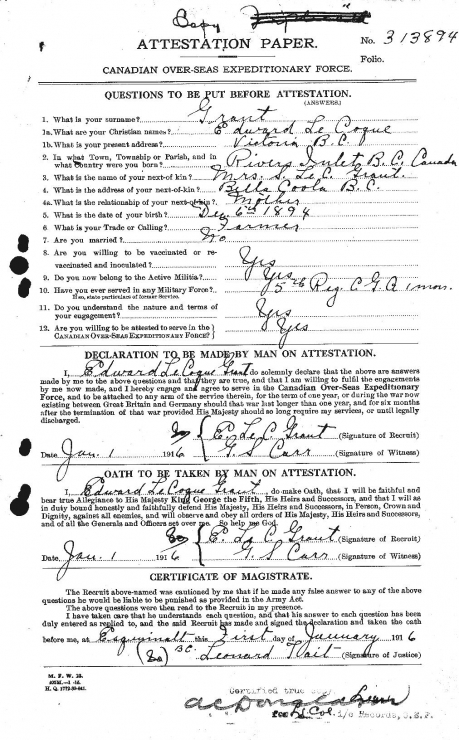 Copy
ATTESTATION PAPER.
No. 313894
Folio.
CANADIAN OVER-SEAS EXPEDITIONARY FORCE.
QUESTIONS TO BE PUT BEFORE ATTESTATION.
(ANSWERS)
1. What is your surname? Grant
1a. What are your Christian names? Edward Le Coque
1b. What is your present address? Victoria B.C.
2. In what Town, Township or Parish, and in
what Country were you born? Rivers Inlet B.C. Canada
3. What is the name of your next-of-kin? Mrs. S. Le C. Grant.
4. What is the address of your next-of-kin? Bella Coola B.C.
4a. What is the relationship of your next-of-kin? Mother
5. What is the date of your birth? Dec 6th 1894
6. What is your Trade or Calling? Farmer
7. Are you married? No
8. Are you willing to be vaccinated or re-
vaccinated and inoculated? Yes
9. Do you now belong to the Active Militia? Yes
10. Have you ever served in any Military Force? 5th Reg. C G A 1 mon.
If so, state particulars of former Service.
11. Do you understand the nature and terms of
your engagement? Yes
12. Are you willing to be attested to serve in the
CANADIAN OVER-SEAS EXPEDITIONARY FORCE? Yes
DECLARATION TO BE MADE BY MAN ON ATTESTATION.
I, Edward Le Coque Grant do solemnly declare that the above are answers
made by me to the above questions and that they are true, and that I am willing to fulfil the engagements
by me now made, and I hereby engage and agree to serve in the Canadian Over-Seas Expeditionary
Force, and to be attached to any arm of the service therein, for the term of one year, or during the war now
existing between Great Britain and Germany should that war last longer than one year, and for six months
after the termination of that war provided His Majesty should so long require my services, or until legally
discharged.
E. Le C. Grant (Signature of Recruit)
Date Jan. 1 1916 G. S. Carr (Signature of Witness)
OATH TO BE TAKEN BY MAN ON ATTESTATION.
I, Edward Le Coque Grant do make Oath, that I will be faithful and
bear true Allegiance to His Majesty King George the Fifth, His Heirs and Successors, and that I will as
in duty bound honestly and faithfully defend His Majesty, His Heirs and Successors, in Person, Crown and
Dignity, against all enemies, and will observe and obey all orders of His Majesty, His Heirs and Successors,
and of all the Generals and Officers set over me. So help me God.
E. Le C. Grant (Signature of Recruit)
Date Jan. 1 1916 G. S. Carr (Signature of Witness)
CERTIFICATE OF MAGISTRATE.
The Recruit above-named was cautioned by me that if he made any false answer to any of the above
questions he would be liable to be punished as provided in the Army Act.
The above questions were then read to the Recruit in my presence.
I have taken care that he understands each question, and that his answer to each question has been
duly entered as replied to, and the said Recruit has made and signed the declaration and taken the oath
before me, at Esquimalt this First day of January 1916
B.C. Leonard Tait (Signature of Justice)
M. F. W. 23.
H. Q. 1772-39-841.
Certified true copy
for Lt Col. i/c Records, C.E.F.